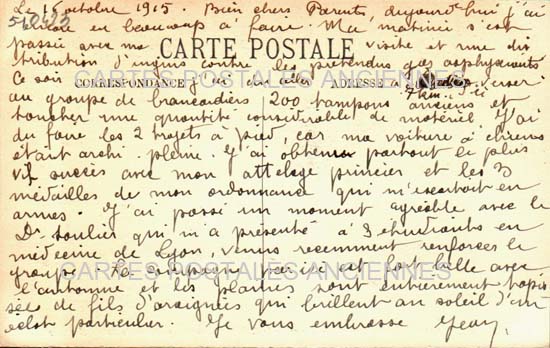 Le 15 octobre 1915. Bien chers Parents, aujourd'hui j'ai
en beaucoup à faire. Ma matinée s'est
passée avec ma visite et une dis
CARTE POSTALE
tribution d'engins contre les prétendus gaz asphyxiants
Ce soir
CORRESPONDANCE
ADRESSE
CARTES POSTALES ANCIENNES
au groupe de brancardiers 200 tampons anciens et
toucher une quantité considérable de matériel. J'ai
dû faire les 2 trajets à pied, car ma voiture à chiens
était archi pleine. J'ai obtenu partout le plus
vif succès avec mon attelage princier et les 3
médailles de mon ordonnance qui m'escortait en
armes. J'ai passé un moment agréable avec le
Dr Soulier qui m'a présenté à 3 étudiants en
médecine de Lyon, venus récemment renforcer le
groupe. La campagne par ici est fort belle avec
CARTES POSTALES ANCIENNES
l'automne et les plantes sont entièrement tapis
sées de fils d'araignées qui brillent au soleil d'un
éclat particulier. Je vous embrasse Jean,